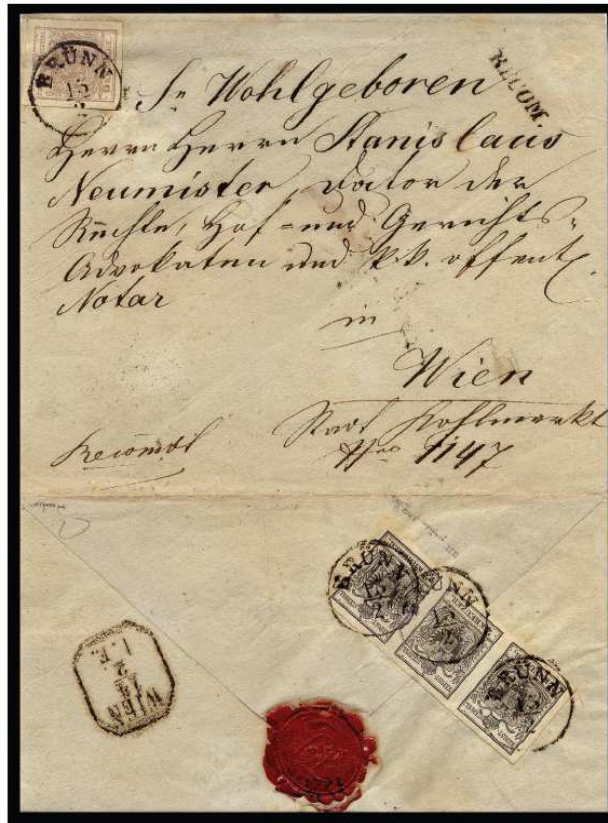 BRÜNN
RECOM.
Sr Wohlgeboren
Herrn Herrn Stanislaus
Neumister, Doctor der
Rechte, Hof- und Gerichts-
Advokaten und k.k. öffentl.
Notar
in
Wien
Stadt Kohlmarkt
Nro 1147
Recomdt
BRÜNN
BRÜNN
BRÜNN
WIEN